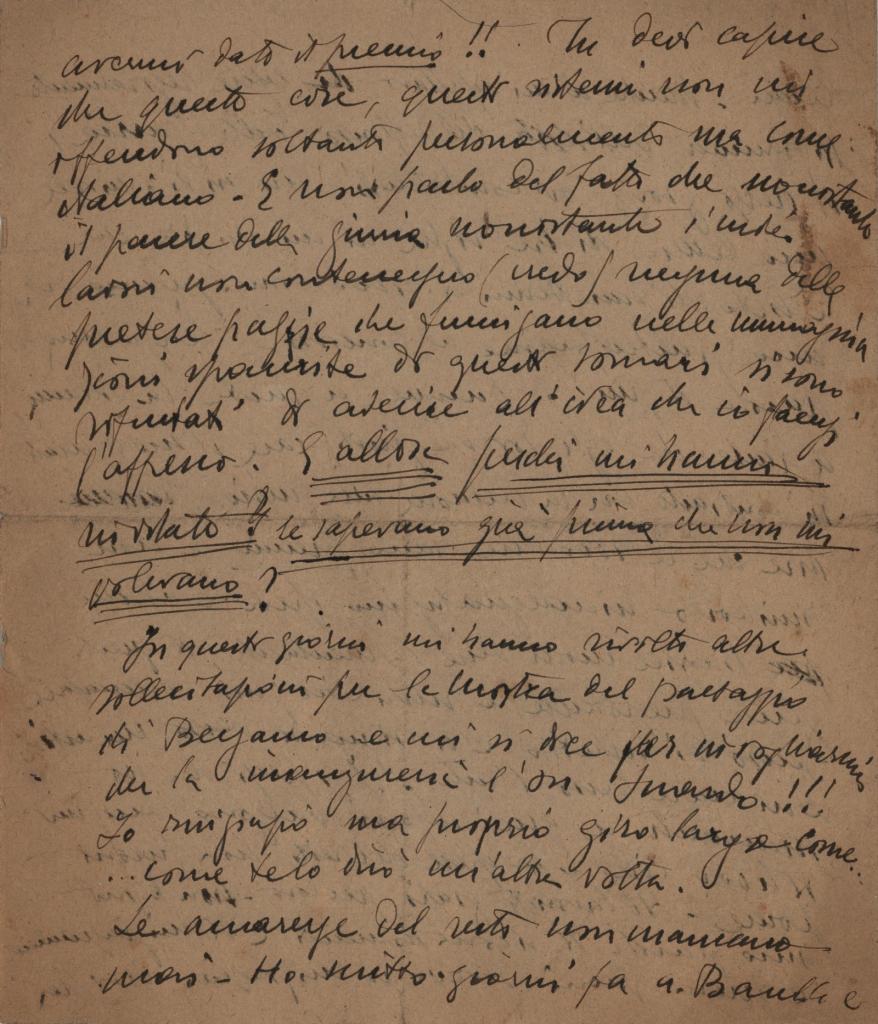 avermi dato il premio!! Tu devi capire
che queste cose, questi sistemi non mi
offendono soltanto personalmente ma come
italiano - E non parlo del fatto che nonostante
il parere della giuria nonostante i miei
lavori non contenessero (credo) nessuna delle
pretese pazzie che fumigano nelle immagina
zioni spaurite di questi somari si sono
rifiutati di aderire all'idea che io facessi
l'affresco. E allora perché mi hanno
invitato? lo sapevano già prima che non mi
volevano?
In questi giorni mi hanno rivolto altre
sollecitazioni per la Mostra del paesaggio
di Bergamo e mi si dice per invogliarmi
che la inaugurerà l'on Suardo!!!
Io ringrazio ma proprio giro largo come..
...come te lo dirò un'altra volta.
Le amarezze del resto non mancano
mai - Ho scritto giorni fa a e